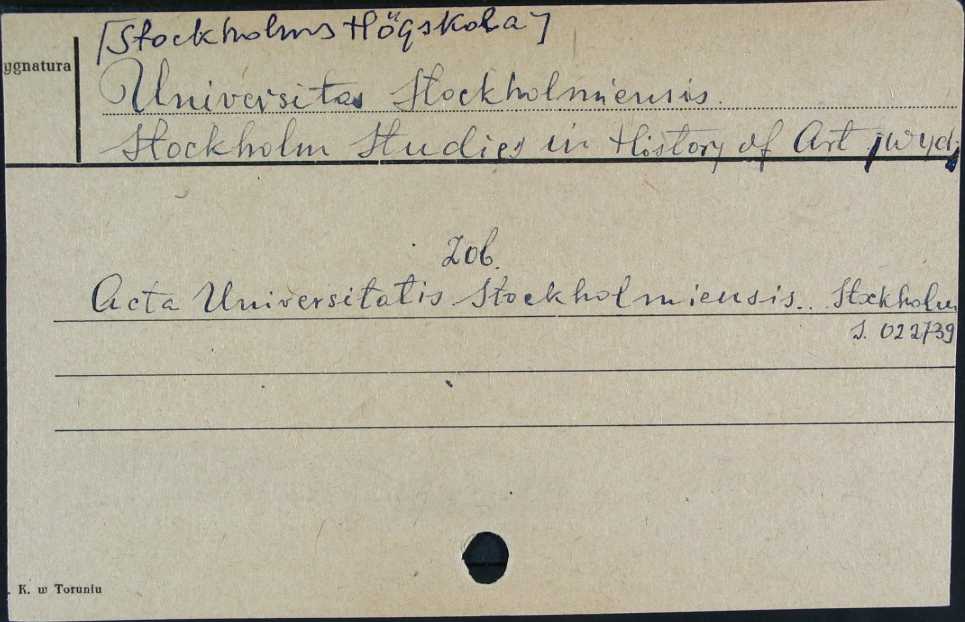 [Stockholms Högskola]
ygnatura
Universitas Stockholmiensis.
Stockholm Studies in History of Art /wyd/
Zob.
Acta Universitatis Stockholmiensis... Stockholm
S. 022739
. K. w Toruniu